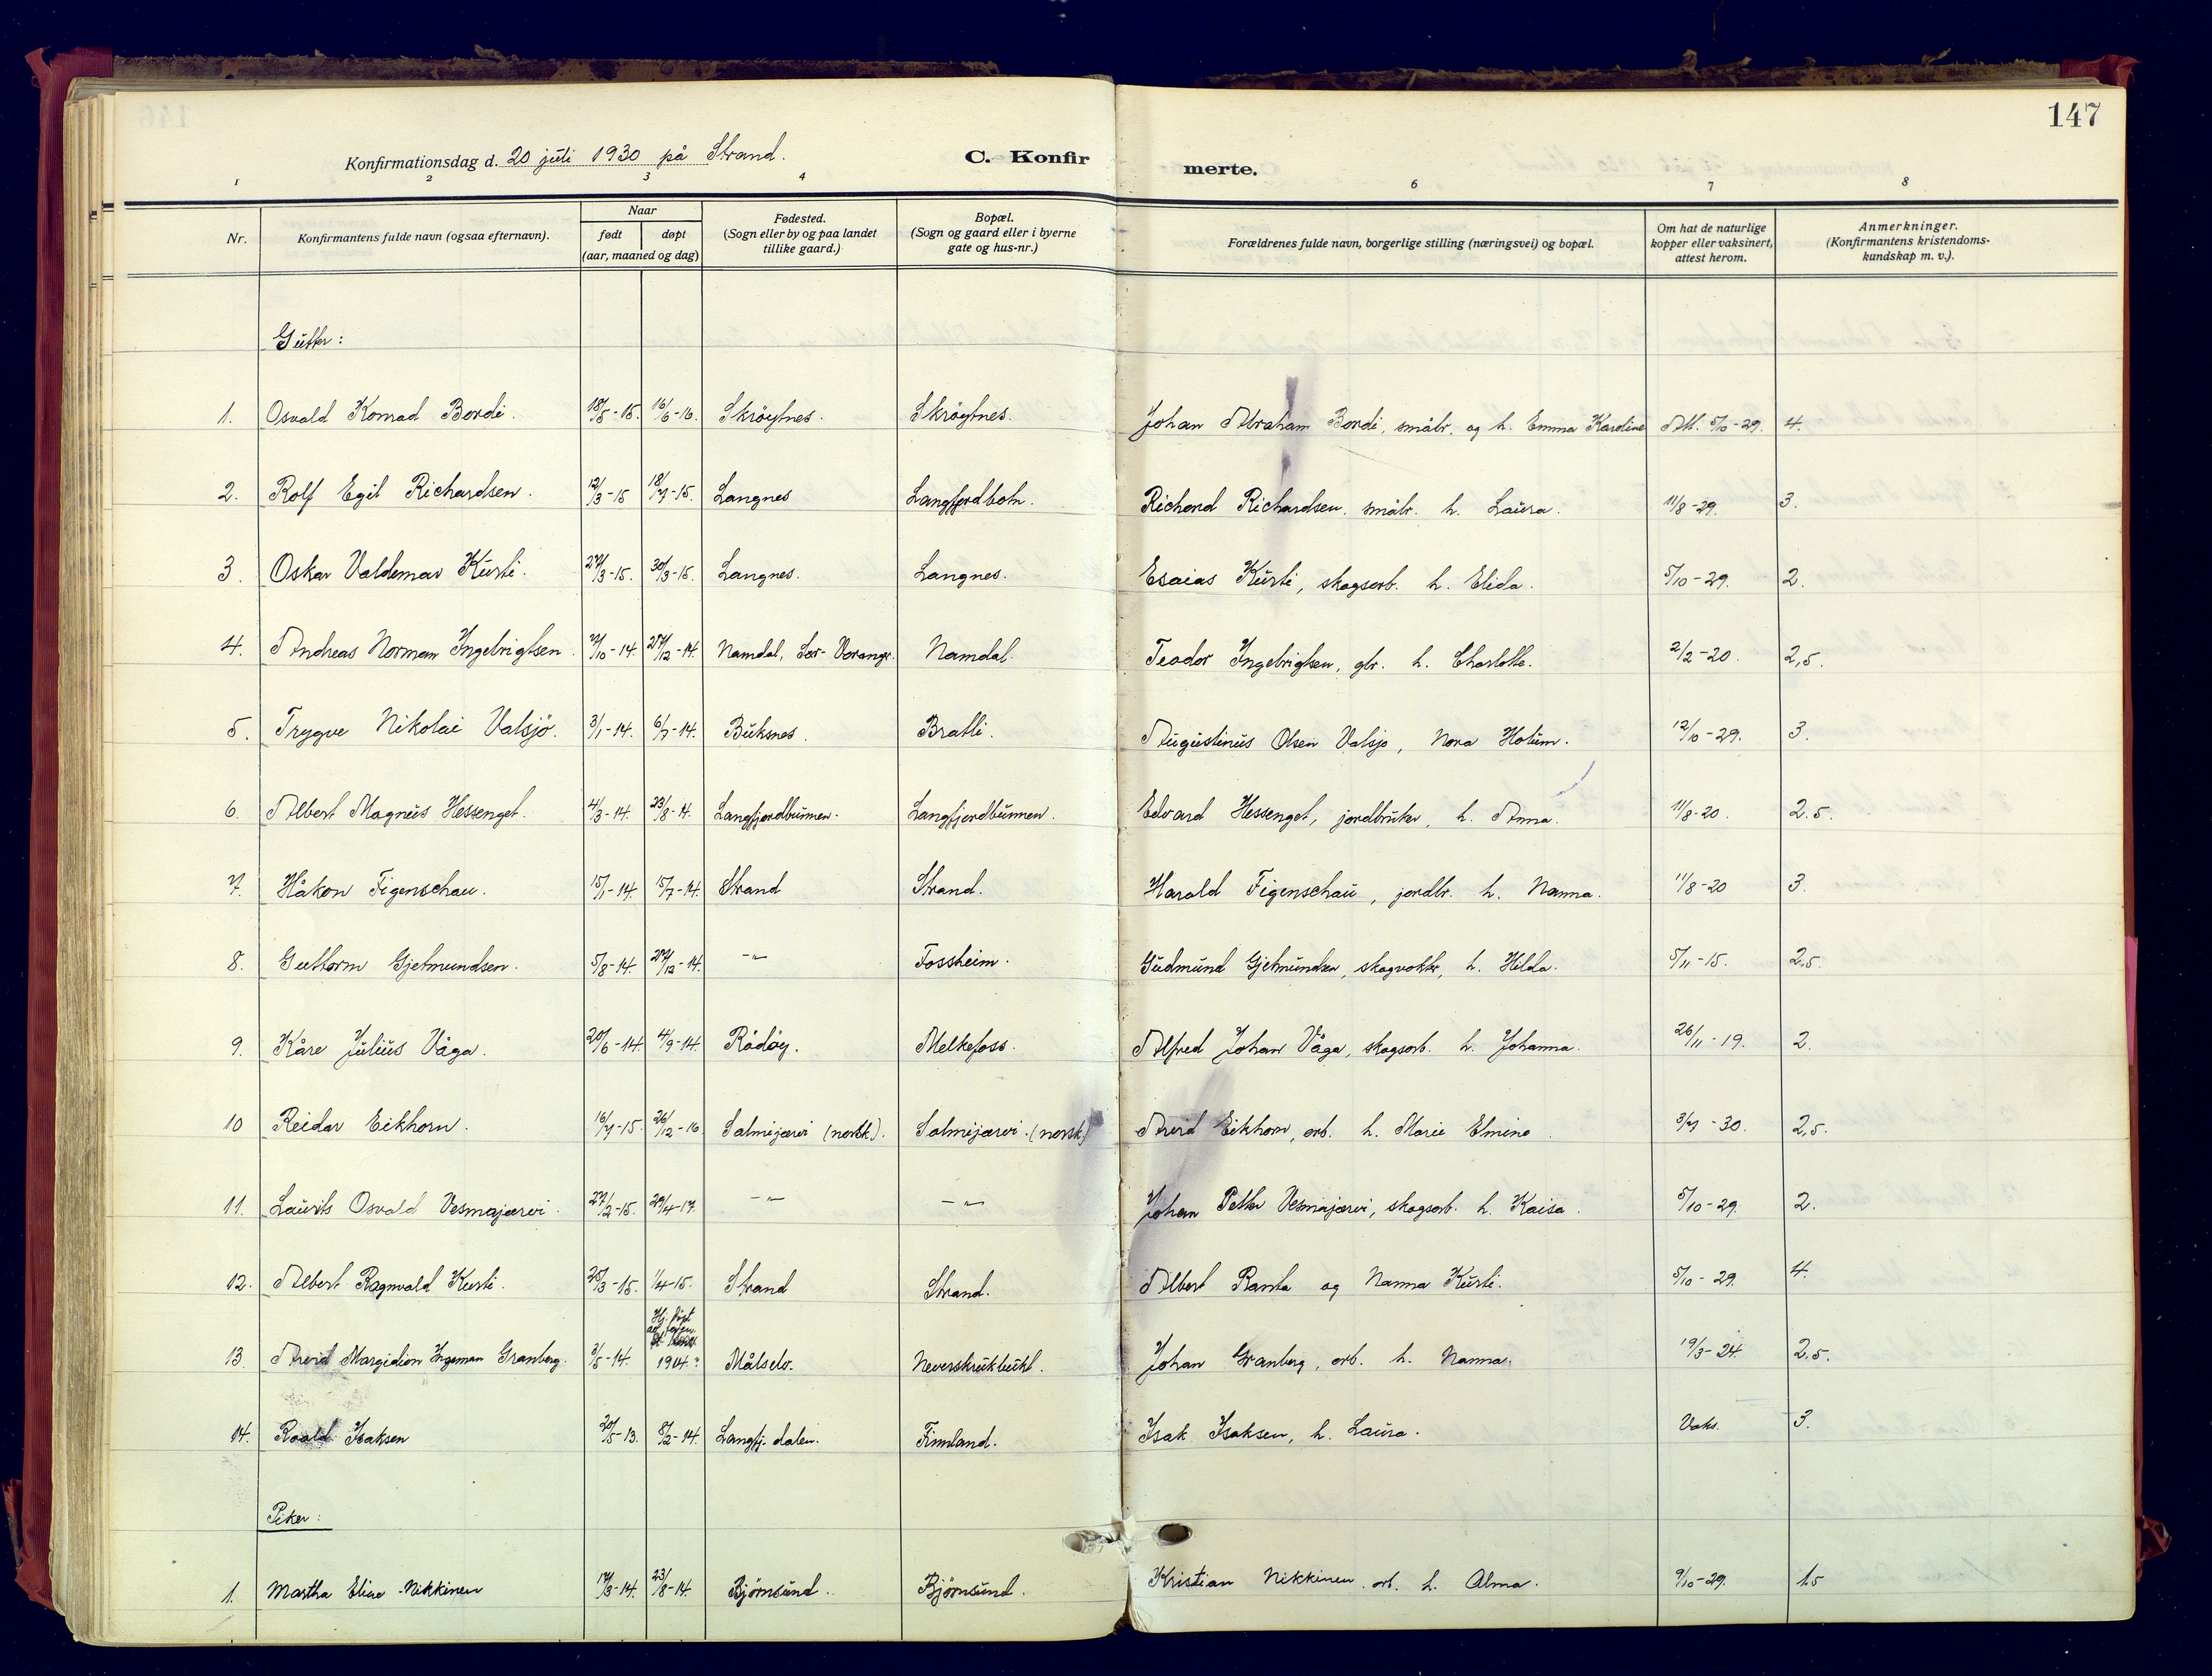 147
Konfirmationsdag d. 20 juli 1930 på Strand. C. Konfirmerte.
1 2 3 4 6 7 8
Nr. Konfirmantens fulde navn (ogsaa efternavn). Naar født døpt (aar, maaned og dag) Fødested. (Sogn eller by og paa landet tillike gaard.) Bopæl. (Sogn og gaard eller i byerne gate og hus-nr.) Forældrenes fulde navn, borgerlige stilling (næringsvei) og bopæl. Om hat de naturlige kopper eller vaksinert, attest herom. Anmerkninger. (Konfirmantens kristendoms-kundskap m. v.).
Gutter:
1. Osvald Konrad Bordi. 18/5-15. 16/6-16. Skrøytnes. Skrøytnes. Johan Abraham Bordi, småbr. og h. Emma Karoline Att. 5/10-29. 4.
2. Rolf Egil Richardsen. 12/3-15 18/7-15. Langnes Langfjordbotn. Richard Richardsen, småbr. h. Laura. 11/8-29. 3.
3. Oskar Valdemar Kurti. 27/3-15. 30/3-15. Langnes. Langnes. Esaias Kurti, skogsarb. h. Elida. 5/10-29. 2.
4. Andreas Norman Ingebrigtsen. 7/10-14. 27/12-14. Namdal, Sør-Varanger. Namdal. Teodor Ingebrigtsen, gbr. h. Charlotte. 2/2-20. 2,5.
5. Trygve Nikolai Valsjö. 3/1-14. 6/7-14. Buksnes. Bratli. Augustinus Olsen Valsjø, Nora Hotum. 12/10-29. 3.
6. Albert Magnus Hessenget. 4/3-14. 23/8-14. Langfjordbunnen. Langfjordbunnen. Edvard Hessenget, jordbruker, h. Anna. 11/8-20. 2.5.
7. Håkon Figenschau. 15/1-14. 15/7-14. Strand Strand. Harald Figenschau, jordbr. h. Nanna. 11/8-20 3.
8. Guttorm Gjetmundsen. 5/8-14. 27/12-14. -"- Fossheim. Gudmund Gjetmundsen, skogvokter, h. Hilda. 5/11-15. 2.5.
9. Kåre Julius Våga. 20/6-14. 4/9-14. Rødøy. Melkefoss. Alfred Johan Våga, skogsarb. h. Johanna. 26/11-19. 2.
10 Reidar Eikhorn. 16/7-15. 26/12-16 Salmijærvi (norsk). Salmijærvi. (norsk) Arvid Eikhorn, arb. h. Marie Elmine 3/7-30. 2,5.
11. Laurits Osvald Vesmajærvi. 27/2-15. 29/4-17. -"- -"- Johan Petter Vesmajærvi, skogsarb. h. Kaisa. 5/10-29. 2.
12. Albert Ragnvald Kurti. 25/3-15. 1/4-15. Strand Strand. Albert Ranta og Nanna Kurti. 5/10-29. 4.
13. Arvid Margidion Ingeman Granberg. 3/5-14. Hj. døpt 1914. Målselv. Neverskrukbukt. Johan Granberg, arb. h. Nanna. 19/3-24. 2,5.
14. Roald Isaksen 20/5-13. 8/2-14. Langfj.dalen. Finnland. Isak Isaksen, h. Laura. Vaks. 3.
Piker:
1. Martha Elise Nikkinen 17/3-14. 23/8-14. Bjørnsund. Bjørnsund. Kristian Nikkinen. arb. h. Alma. 9/10-29. 1.5